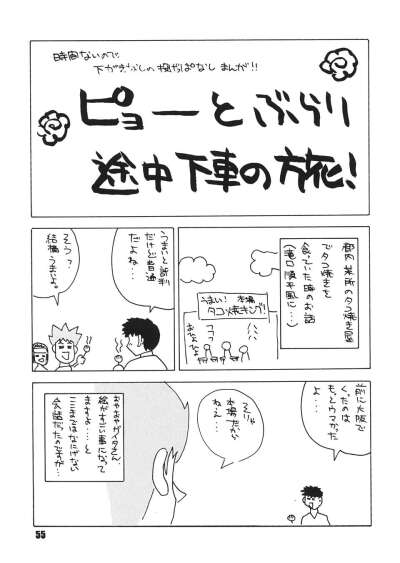 時間ないので
下がきなしの描きっぱなしまんが!!
ピョーとぶらり
途中下車の旅!
都内某所のタコ焼き屋
でタコ焼きを
食っていた時のお話
(滝口順平風に…)
うまい! 本場
タコ焼キング!
うまいと評判
だけど普通
だよね…
そう?
結構うまいよ。
前に大阪で
くったのは
もっとウマかった
よ…
そりゃ
本場だから
ねぇ…
おやおやがヘタさん、
絵がすごい事になって
ますよ……と
ここまではなにげない
会話だったのですが…
55